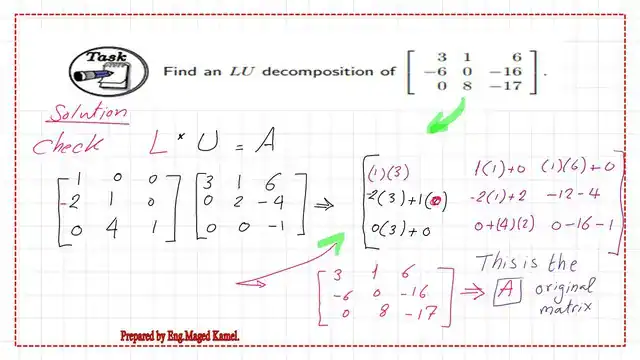 Task
Find an LU decomposition of [ 3 1 6
-6 0 -16
0 8 -17 ].
Solution
Check L * U = A
[ 1 0 0
-2 1 0
0 4 1 ] [ 3 1 6
0 2 -4
0 0 -1 ] ⇒ [ (1)(3) 1(1)+0 (1)(6)+0
-2(3)+1(0) -2(1)+2 -12-4
0(3)+0 0+(4)(2) 0-16-1 ]
[ 3 1 6
-6 0 -16
0 8 -17 ] ⇒ This is the
A original
matrix
Prepared by Eng.Maged Kamel.